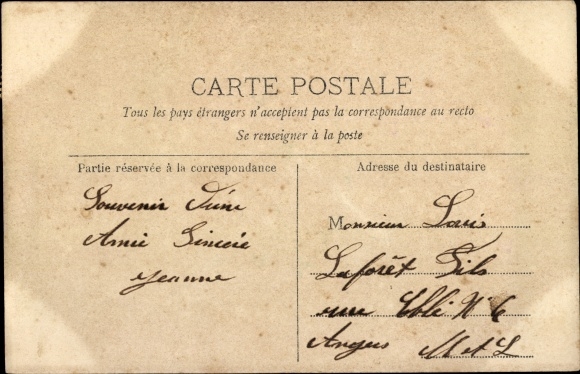 CARTE POSTALE
Tous les pays étrangers n'acceptent pas la correspondance au recto
Se renseigner à la poste
Partie réservée à la correspondance
Adresse du destinataire
Souvenir d'une
Amie Sincère
Jeanne
Monsieur Louis
Laforêt Fils
rue N 6
Angers M et L